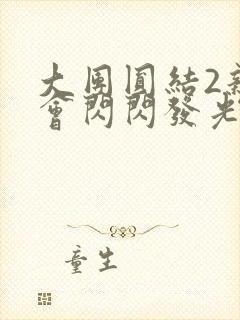 大團圓結2新
會閃閃發光
童生